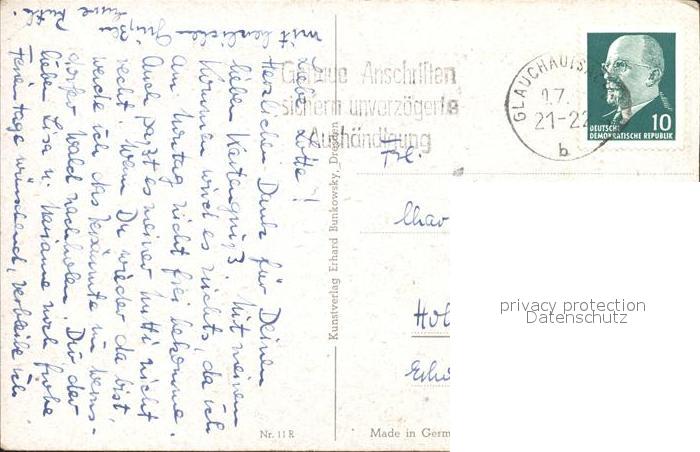 Liebe Lotte!
Herzlichen Dank für Deinen
lieben Kartengruß. Mit meinem
Kommen wird es nichts, da ich
am Montag nicht frei bekomme.
Auch paßt es meiner Mutti nicht
recht. Wenn Du wieder da bist,
werde ich das Versäumte im Werms-
dorfer Wald nachholen. Dir, der
lieben Lisa u. Marianne noch frohe
Ferientage wünschend, verbleibe ich
mit herzlichen Grüßen
Deine Ruth.
Genaue Anschriften
sichern unverzögerte
Aushändigung
GLAUCHAU (SACHS
17. 7.
21-22
b
DEUTSCHE
DEMOKRATISCHE REPUBLIK
10
Frl.
Char
Hol
Kunstverlag Erhard Bunkowsky, Dresden
Nr. 11 R
Made in Germ
privacy protection
Datenschutz